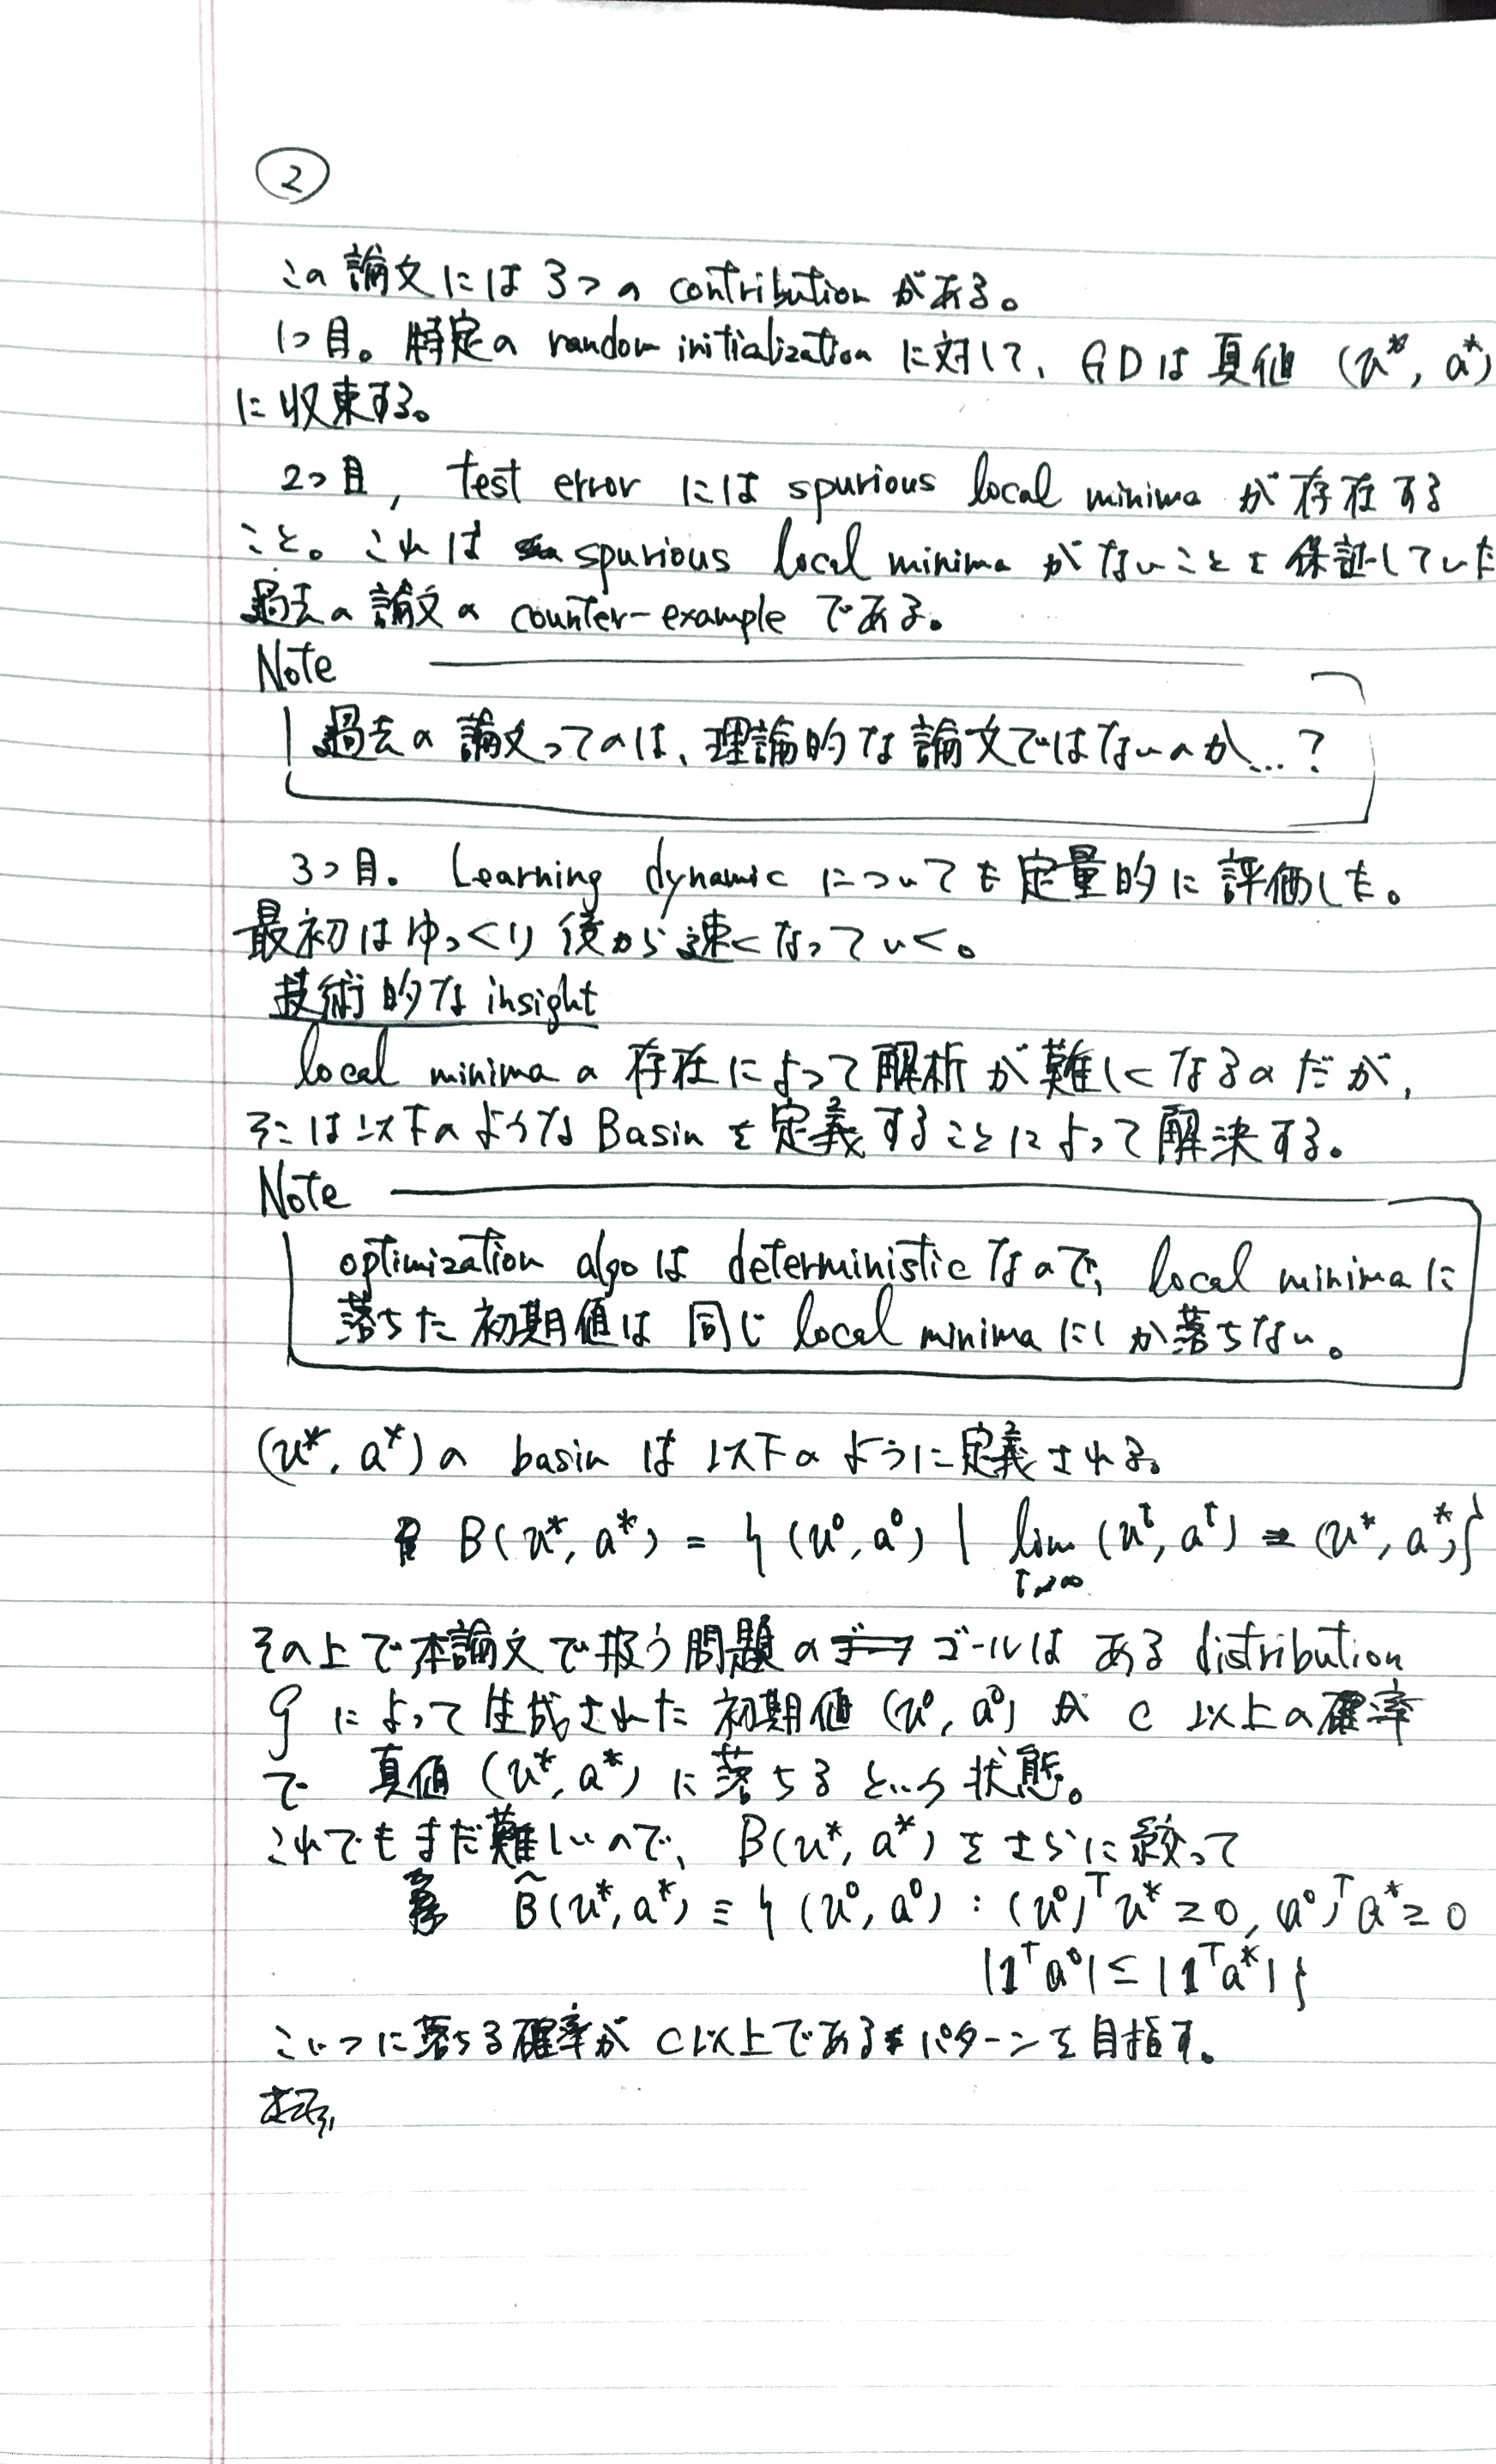 ②
この論文には3つの contribution がある。
1つ目。特定の random initialization に対して、GDは真値 (u*, a*)
に収束する。
2つ目, test error には spurious local minima が存在する
こと。これは spurious local minima がないことを保証していた
過去の論文の counter-example である。
Note
過去の論文ってのは、理論的な論文ではないのか...?
3つ目. Learning dynamic についても定量的に評価した。
最初はゆっくり後から速くなっていく。
技術的な insight
local minima の存在によって解析が難しくなるのだが,
そこは以下のような Basin を定義することによって解決する。
Note
optimization algo は deterministic なので, local minima に
落ちた初期値は同じ local minima にしか落ちない。
(u*, a*) の basin は以下のように定義される。
B(u*, a*) = { (u⁰, a⁰) | lim_{t→∞} (uᵗ, aᵗ) = (u*, a*) }
その上で本論文で扱う問題のゴールは ある distribution
によって生成された初期値 (u⁰, a⁰) が c 以上の確率
で 真値 (u*, a*) に落ちるという状態。
これでもまだ難しいので、B(u*, a*) をさらに絞って
B̂(u*, a*) ≡ { (u⁰, a⁰) : (u⁰)ᵀu* ≥ 0, (a⁰)ᵀa* ≥ 0
|1ᵀa⁰| ≤ |1ᵀa*| }
こいつに落ちる確率が c以上であるパターンを目指す。